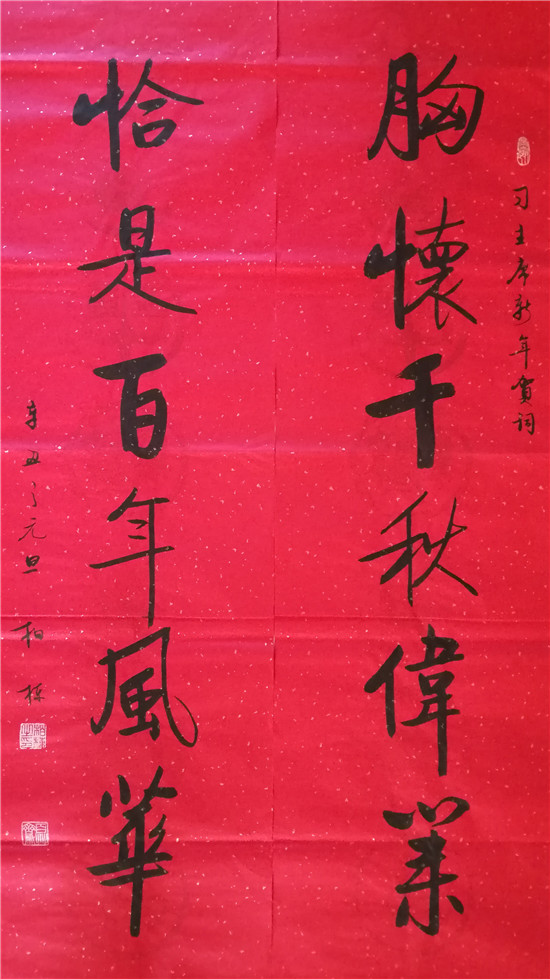 习主席新年贺词
胸懷千秋偉業
恰是百年風華
辛丑之元旦 柏栋